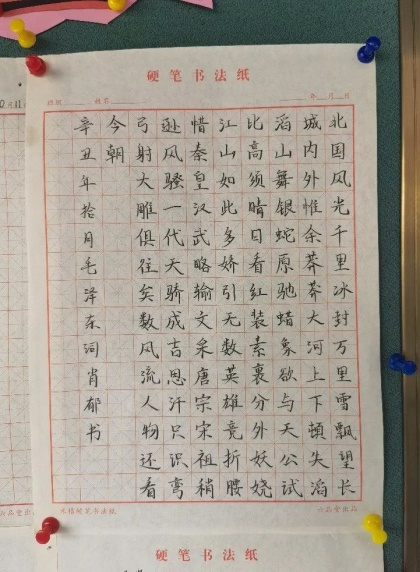 硬笔书法纸
姓名
年 月 日
北国风光千里冰封万里雪飘望长
城内外惟余莽莽大河上下頓失滔
滔山舞银蛇原驰蜡象欲与天公试
比高须晴日看红装素裹分外妖娆
江山如此多娇引无数英雄竞折腰
惜秦皇汉武略输文采唐宗宋祖稍
逊风骚一代天骄成吉思汗只识弯
弓射大雕俱往矣数风流人物还看
今朝
辛丑年拾月毛泽东词肖郁书
六品堂出品
硬笔书法纸